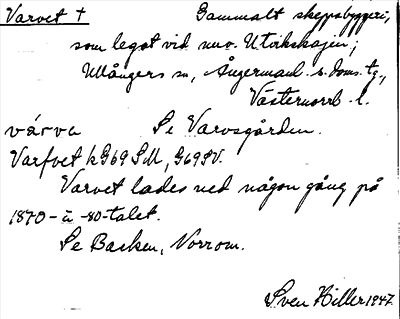 Varvet † Gammalt skeppsbyggeri,
som legat vid nuv. Utvikskajen;
Ullångers sn, Ångermanl. s. doms. tg.,
Västernorrl. l.
várva Se Varvsgården.
Varfvet kG69SM, G69SV.
Varvet lades ned någon gång på
1870- ú -80-talet.
Se Backen, Norrom.
Sven Hiller 1947.